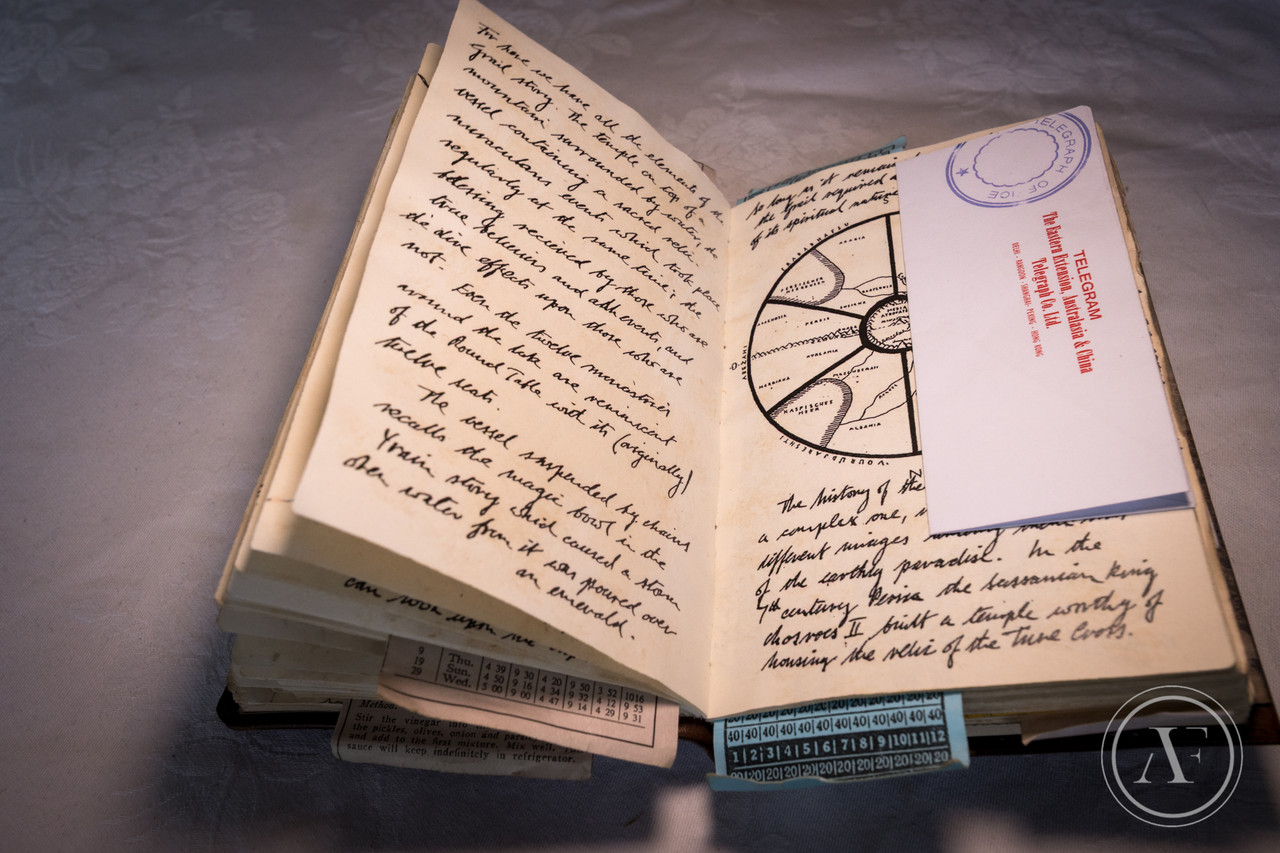 For here we have all the elements of the
Grail story. The temple on top of a
mountain surrounded by water, the
vessel containing a sacred relic.
miraculous events which took place
regularly at the same time; the
blessing recieved by those who are
true believers and adherents, and
the dire effects upon those who are
not.
Even the twelve ministries
around the lake are reminiscent
of the Round Table with its (originally)
twelve seats.
The vessel suspended by chains
recalls the magic bowl in the
Yvain story which caused a storm
when water from it was poured over
an emerald.
can look upon
9
19 Thu. 4 39 9 30 4 20 9 50 3 52 1016
29 Sun. 4 50 9 16 4 34 9 32 4 12 9 53
Wed. 5 00 9 00 4 47 9 14 4 29 9 31
Method:
Stir the vinegar into
the pickles, olives, onion and
and add to the first mixture. Mix well.
sauce will keep indefinitely in refrigerator.
so long as it remain
the Grail required a
of its spiritual nature
ARABIA
PERSIS
HYRKANIA
MARGIANA
KASPISCHES
MEER
ALBANIA
VOURUDJARESHTI
The history of the
a complex one,
different images among them
of the earthly paradise. In the
7th century Persia the Sassanian King
Chosroes II built a temple worthy of
housing the relic of the True Cross.
TELEGRAPH OFFICE
TELEGRAM
The Eastern Extension, Australasia & China
Telegraph Co. Ltd.
DELHI - RANGOON - SHANGHAI - PEKING - HONG KONG
20|20|20|20|20|20|20|20|20|20|20|20
40|40|40|40|40|40|40|40|40|40|40|40
1|2|3|4|5|6|7|8|9|10|11|12
20|20|20|20|20|20|20|20|20|20|20|20
AF